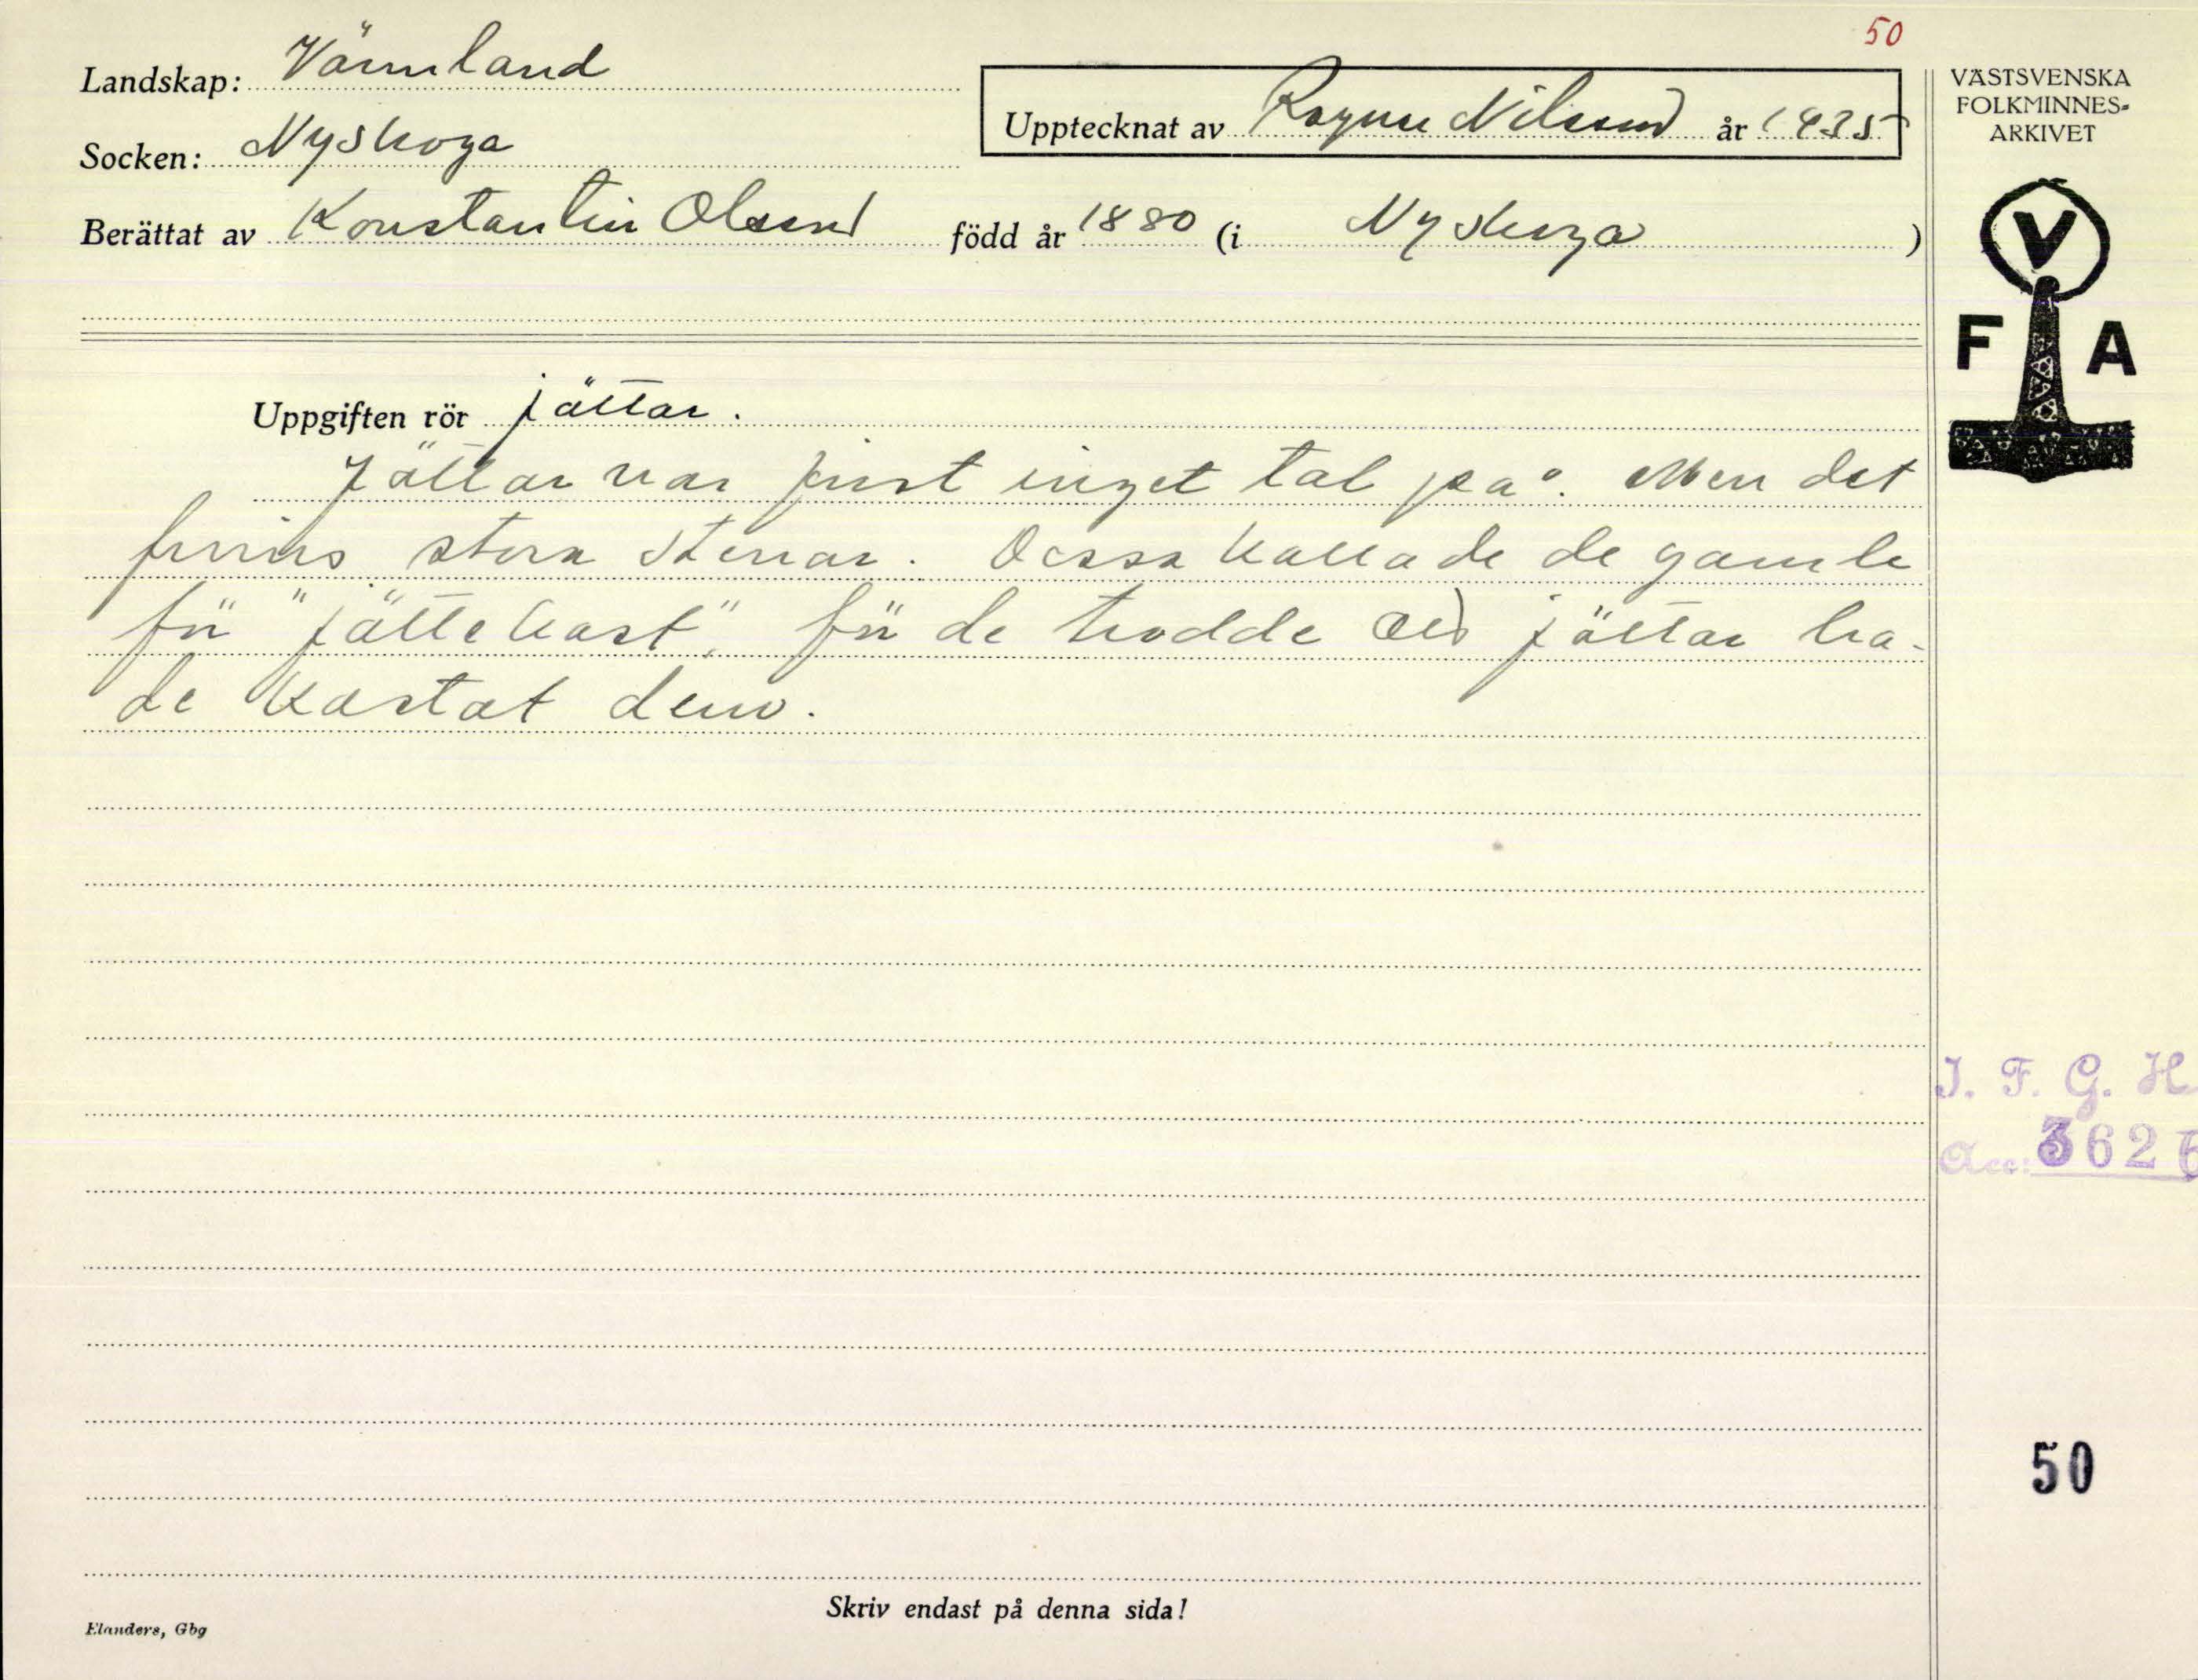 50
Landskap: Värmland
Upptecknat av Ragnar Nilsson år 1935
Socken: Nyskoga
Berättat av Konstantin Olsson född år 1880 (i Nyskoga )
Uppgiften rör jättar.
Jättar var just inget tal på. Men det
finns stora stenar. Dessa kallade de gamle
för "jättekast", för de trodde att jättar ha-
de kastat dem.
Skriv endast på denna sida!
Elanders, Gbg
VÄSTSVENSKA
FOLKMINNES-
ARKIVET
V
F A
I. F. G. H.
Acc: 362
50